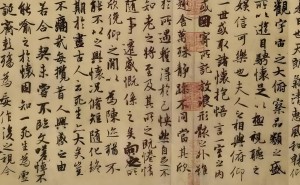 觀宇宙之大俯察品類之盛
所以遊目騁懷足以極視聽之
娛信可樂也夫人之相與俯仰
一世或取諸懷抱悟言一室之內
或因寄所託放浪形骸之外雖
趣舍萬殊靜躁不同當其欣
於所遇暫得於己怏然自足不
知老之將至及其所之既惓情
隨事遷感慨係之矣向之所
欣俛仰之間以為陳迹猶不
能不以之興懷況脩短隨化終
期於盡古人云死生亦大矣豈
不痛哉每攬昔人興感之由
若合一契未嘗不臨文嗟悼不
能喻之於懷固知一死生為虛
誕齊彭殤為妄作後之視今